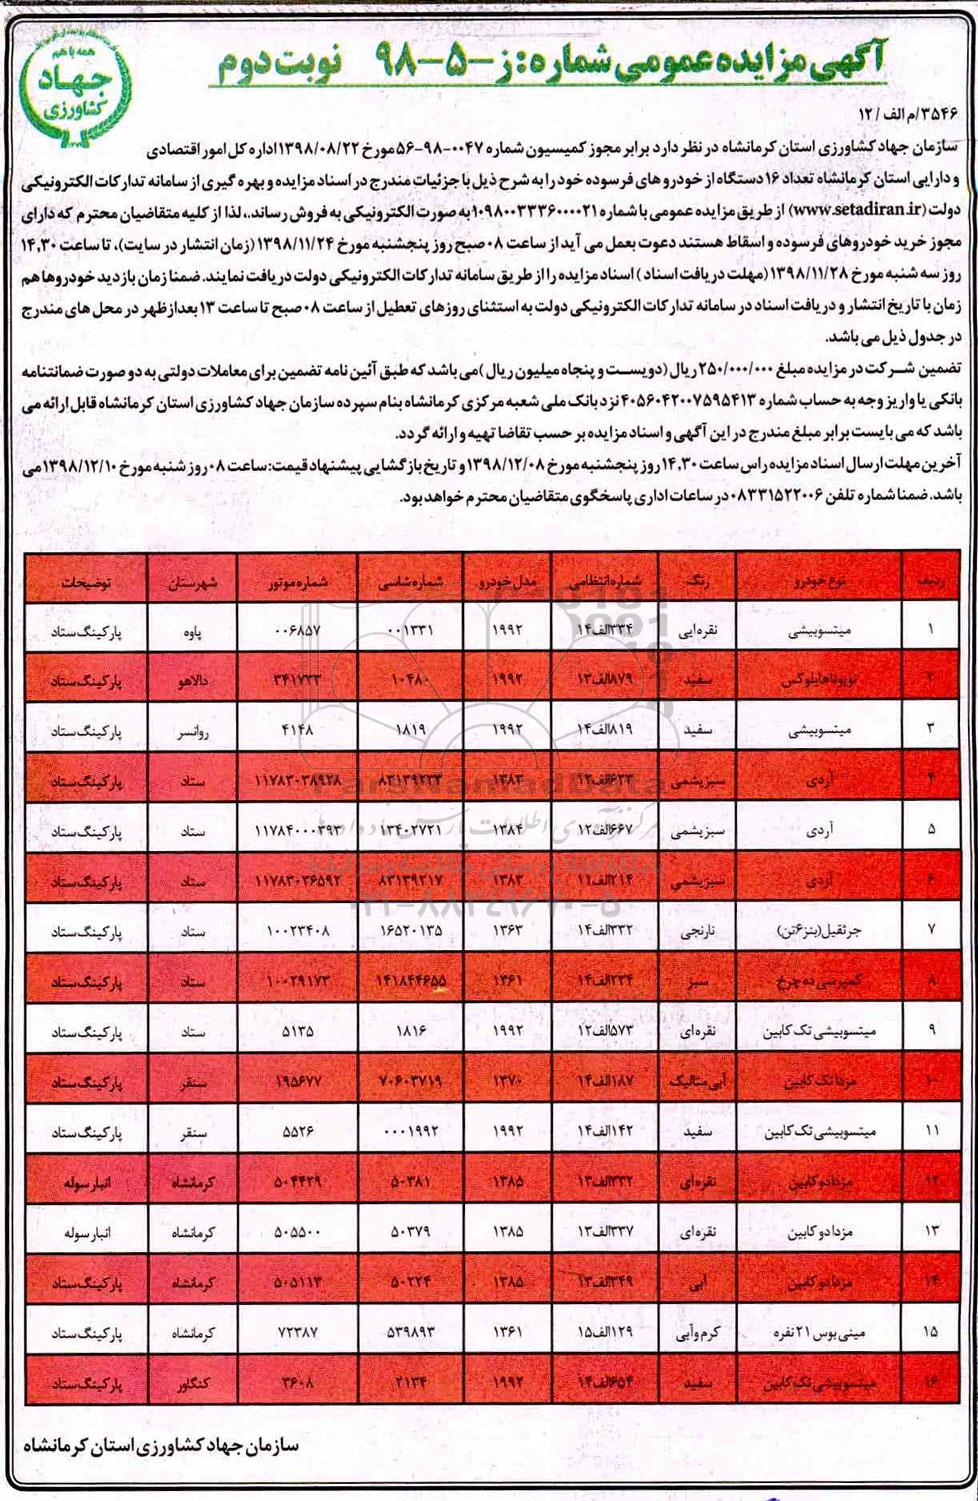 همه با هم
جهاد
کشاورزی
آگهی مزایده عمومی شماره: ز-۵-۹۸ نوبت دوم
۳۵۴۶/م الف /۱۲
سازمان جهاد کشاورزی استان کرمانشاه در نظر دارد برابر مجوز کمیسیون شماره ۰۰۴۷-۹۸-۵۶ مورخ ۱۳۹۸/۰۸/۲۲ اداره کل امور اقتصادی
و دارایی استان کرمانشاه تعداد ۱۶ دستگاه از خودروهای فرسوده خود را به شرح ذیل با جزئیات مندرج در اسناد مزایده و بهره گیری از سامانه تدارکات الکترونیکی
دولت (www.setadiran.ir) از طریق مزایده عمومی با شماره ۱۰۹۸۰۰۳۳۳۶۰۰۰۰۲۱ به صورت الکترونیکی به فروش رساند.، لذا از کلیه متقاضیان محترم که دارای
مجوز خرید خودروهای فرسوده و اسقاط هستند دعوت بعمل می آید از ساعت ۰۸ صبح روز پنجشنبه مورخ ۱۳۹۸/۱۱/۲۴ (زمان انتشار در سایت)، تا ساعت ۱۴,۳۰
روز سه شنبه مورخ ۱۳۹۸/۱۱/۲۸ (مهلت دریافت اسناد ) اسناد مزایده را از طریق سامانه تدارکات الکترونیکی دولت دریافت نمایند. ضمنا زمان بازدید خودروها هم
زمان با تاریخ انتشار و دریافت اسناد در سامانه تدارکات الکترونیکی دولت به استثنای روزهای تعطیل از ساعت ۰۸ صبح تا ساعت ۱۳ بعداز ظهر در محل های مندرج
در جدول ذیل می باشد.
تضمین شرکت در مزایده مبلغ ۲۵۰/۰۰۰/۰۰۰ ریال (دویست و پنجاه میلیون ریال) می باشد که طبق آئین نامه تضمین برای معاملات دولتی به دو صورت ضمانتنامه
بانکی یا واریز وجه به حساب شماره ۴۰۵۶۰۴۲۰۰۷۵۹۵۴۱۳ نزد بانک ملی شعبه مرکزی کرمانشاه بنام سپرده سازمان جهاد کشاورزی استان کرمانشاه قابل ارائه می
باشد که می بایست برابر مبلغ مندرج در این آگهی و اسناد مزایده بر حسب تقاضا تهیه و ارائه گردد.
آخرین مهلت ارسال اسناد مزایده راس ساعت ۱۴,۳۰ روز پنجشنبه مورخ ۱۳۹۸/۱۲/۰۸ و تاریخ بازگشایی پیشنهاد قیمت: ساعت ۰۸ روز شنبه مورخ ۱۳۹۸/۱۲/۱۰ می
باشد. ضمنا شماره تلفن ۰۸۳۳۱۵۲۲۰۰۶ در ساعات اداری پاسخگوی متقاضیان محترم خواهد بود.
ردیف نوع خودرو رنگ شماره انتظامی مدل خودرو شماره شاسی شماره موتور شهرستان توضیحات
۱ میتسوبیشی نقره ایی ۳۳۴الف۱۴ ۱۹۹۲ ۰۰۱۳۳۱ ۰۰۶۸۵۷ پاوه پارکینگ ستاد
۲ تویوتا هایلوکس سفید ۸۷۹الف۱۳ ۱۹۹۲ ۱۰۴۸۰ ۳۴۱۷۳۳ دالاهو پارکینگ ستاد
۳ میتسوبیشی سفید ۸۱۹الف۱۴ ۱۹۹۲ ۱۸۱۹ ۴۱۴۸ روانسر پارکینگ ستاد
۴ آردی سبزیشمی ۶۲۳الف۱۲ ۱۳۸۳ ۸۳۱۳۹۲۳۳ ۱۱۷۸۳۰۳۸۹۲۸ ستاد پارکینگ ستاد
۵ آردی سبزیشمی ۶۶۷الف۱۲ ۱۳۸۴ ۱۳۴۰۲۷۲۱ ۱۱۷۸۴۰۰۰۳۹۳ ستاد پارکینگ ستاد
۶ آردی سبزیشمی ۲۱۴الف۱۱ ۱۳۸۳ ۸۳۱۳۹۲۱۷ ۱۱۷۸۳۰۳۶۵۹۲ ستاد پارکینگ ستاد
۷ جرثقیل(بنز۶تن) نارنجی ۳۳۲الف۱۴ ۱۳۶۳ ۱۶۵۲۰۱۳۵ ۱۰۰۲۳۴۰۸ ستاد پارکینگ ستاد
۸ کمپرسی ده چرخ سبز ۲۳۴الف۱۴ ۱۳۶۱ ۱۴۱۸۴۴۶۵۵ ۱۰۰۲۹۱۷۳ ستاد پارکینگ ستاد
۹ میتسوبیشی تک کابین نقره ای ۵۷۳الف۱۲ ۱۹۹۲ ۱۸۱۶ ۵۱۳۵ ستاد پارکینگ ستاد
۱۰ مزدا تک کابین آبی متالیک ۱۸۷الف۱۴ ۱۳۷۰ ۷۰۶۰۳۷۱۹ ۱۹۵۶۷۷ سنقر پارکینگ ستاد
۱۱ میتسوبیشی تک کابین سفید ۱۴۲الف۱۴ ۱۹۹۲ ۰۰۰۱۹۹۲ ۵۵۲۶ سنقر پارکینگ ستاد
۱۲ مزدا دو کابین نقره ای ۳۳۲الف۱۳ ۱۳۸۵ ۵۰۳۸۱ ۵۰۴۴۲۹ کرمانشاه انبار سوله
۱۳ مزدا دو کابین نقره ای ۳۳۷الف۱۳ ۱۳۸۵ ۵۰۳۷۹ ۵۰۵۵۰۰ کرمانشاه انبار سوله
۱۴ مزدا دو کابین آبی ۳۴۹الف۱۳ ۱۳۸۵ ۵۰۲۲۴ ۵۰۵۱۱۳ کرمانشاه پارکینگ ستاد
۱۵ مینی بوس ۲۱ نفره کرم وآبی ۱۲۹الف۱۵ ۱۳۶۱ ۵۳۹۸۹۳ ۷۲۳۸۷ کرمانشاه پارکینگ ستاد
۱۶ میتسوبیشی تک کابین سفید ۶۵۴الف۱۴ ۱۹۹۲ ۲۱۳۴ ۳۶۰۸ کنگاور پارکینگ ستاد
ParsNamadData
سازمان جهاد کشاورزی استان کرمانشاه